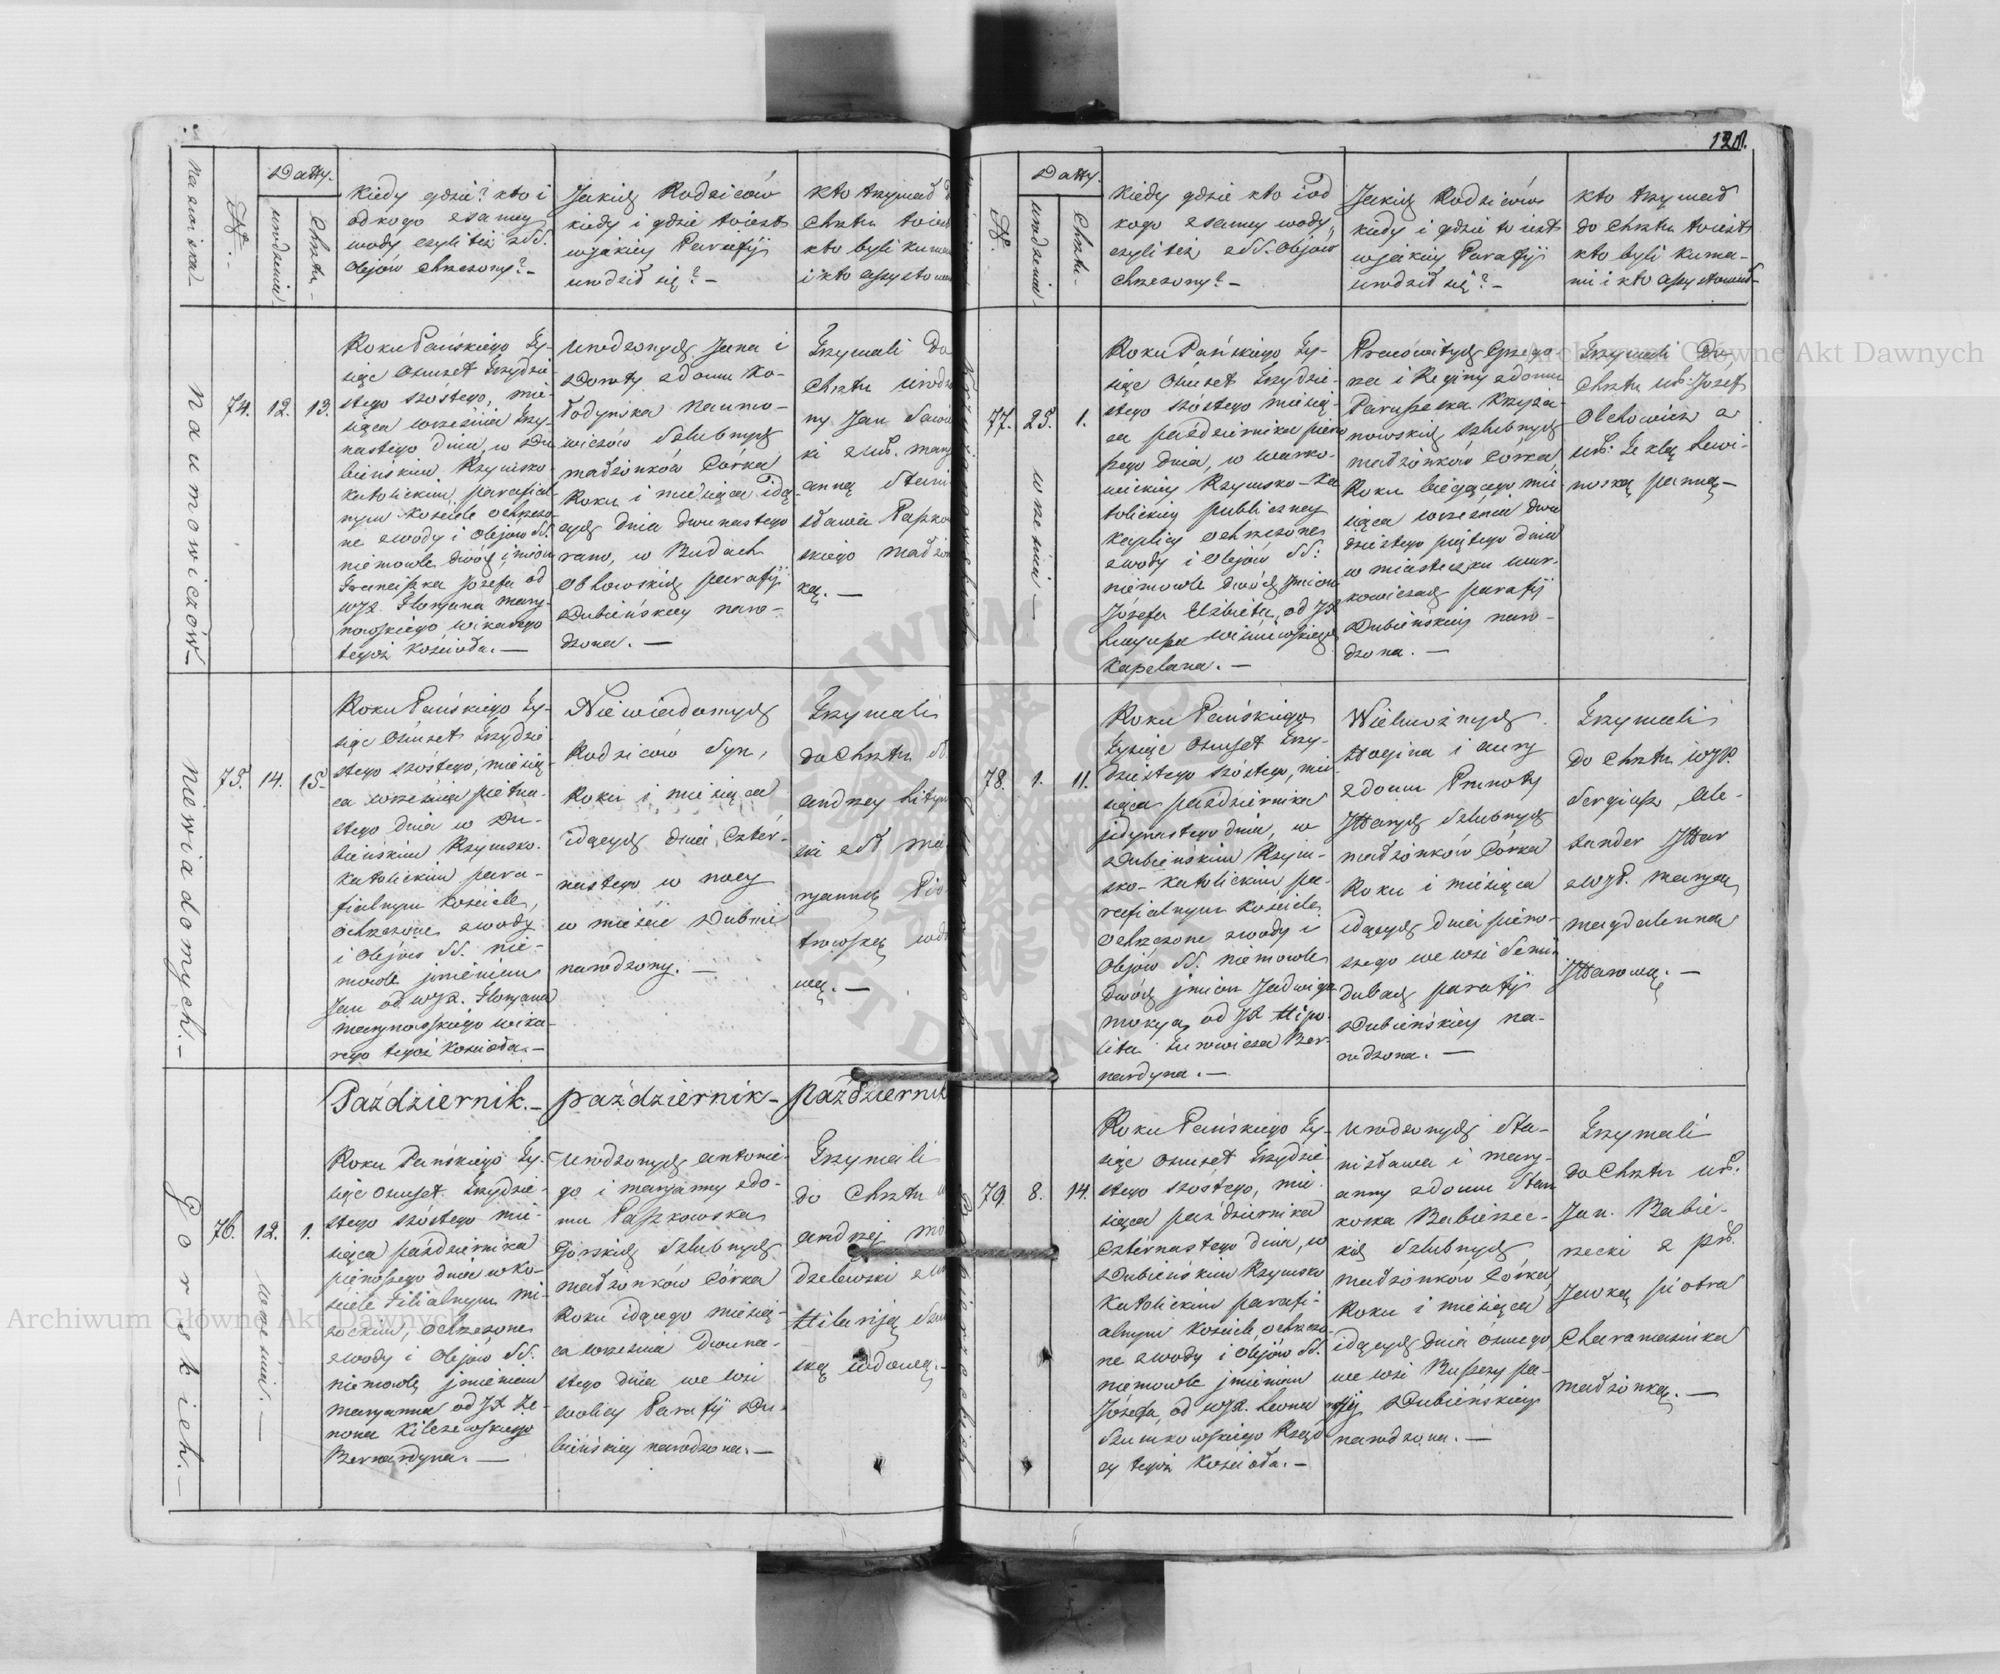 128.
Nazwiska
N.
Datty.
urodzenia
Chrztu.
Kiedy gdzie? kto i
od kogo z samey
wody czyli też z SS.
Olejów chrzczony? –
Jakich Rodziców
kiedy i gdzie to iest
w jakiey Parafij
urodził się? –
Kto trzymał d
Chrztu to iest
kto byli kuma
i kto assystowa
Naumowiczów –
74.
12.
13.
Roku Pańskiego Ty-
siąc Osmset Trzydzie
stego szóstego, mie-
siąca września trzy-
nastego dnia, w Du
bieńskim Rzymsko
katolickim parafial
nym kościele ochrzczo-
ne z wody i Olejów SS.
niemowle dwóch imion
Franciszka Józefa od
WJX. Floryana Mary-
nowskiego wikarego
tegoż kościoła. –
Urodzonych Jana i
Doroty z domu Ko-
łodyńska Naumo-
wiczów Szlubnych
małżonków Córka
Roku i miesiąca idą
cych dnia dwunastego
rano, w Budach
parafij
Dubieńskiey naro-
dzona. –
Trzymali do
Chrztu urodzo
ny Jan Sawic
ki z Ur. Mary
anną Stani
sława Paszko
skiego małżon
ką. –
Niewiadomych. –
75.
14.
15.
Roku Pańskiego Ty-
siąc Osmset Trzydzie
stego szóstego, miesią
ca września pietna-
stego dnia w Du-
bieńskim Rzymsko.
Katolickim para-
fialnym kościele,
Ochrzczone z wody
i Olejów SS. nie-
mowle jmieniem
Jan od WJX. Floryana
Marynowskiego wika-
rego tegoż Kościoła. –
Niewiadomych
Rodziców Syn,
Roku i miesiąca
idących dnia czter-
nastego w nocy
w mieście Dubnie
narodzony. –
Trzymali
do Chrztu
Andrzey
ski z
ryanną Pio
trowską wdo
wą. –
Październik. –
październik –
październik
Gorskich. –
76.
12.
Września. –
1.
Roku Pańskiego Ty-
siąc Osmset Trzydzie-
stego szóstego mie-
siąca października
pierwszego dnia w ko-
ściele Filialnym Mi-
zockim, Ochrzczone
z wody i Olejów SS.
niemowle jmieniem
Maryanna od JX Ze-
nona Kilczewskiego
Bernardyna. –
Urodzonych Antonie-
go i Maryanny z do-
mu Paszkowska
Gorskich Szlubnych
małżonków Córka
Roku idącego miesią-
ca września Dwuna-
stego dnia we wsi
Wolicy Parafij Du-
bieńskiey narodzona. –
Trzymali
do Chrztu
Andrzej Mo
dzelewski z
Hilarją
ską wdową. –
N.
Datty.
urodzenia
Chrztu.
Kiedy gdzie kto i od
kogo z samey wody,
czyli też z SS. Olejów
Chrzczony? –
Jakich Rodziców
kiedy i gdzie to iest
w jakiey Parafij
urodził się? –
Kto trzymał
do Chrztu to iest
kto byli kuma-
mi i kto assystował –
77.
25.
września –
1.
Roku Pańskiego Ty-
siąc Osmset Trzydzie-
stego szóstego miesią-
ca października pierw
szego dnia, w Warko-
wickiey Rzymsko-Ka
tolickiey publiczney
kaplicy ochrzczone
z wody i Olejów SS.
niemowle dwóch jmion
Józefa Elżbieta, od JX
Wiśniewskiego
Kapelana. –
Pracowitych Grzego
rza i Reginy z domu
Paruszeska Krzyża
nowskich szlubnych
małżonków Córka
Roku bieżącego mie
siąca września dwu
dziestego piątego dnia
w miasteczku War-
kowiczach parafij
Dubieńskiey naro-
dzona. –
Trzymali do
Chrztu Ur: Jozef
Olechowicz z
Ur: Teklą Lewi-
noską panną –
78.
1.
11.
Roku Pańskiego
Tysiąc Osmset Trzy-
dziestego szóstego, mie
siąca października
jedynastego dnia, w
Dubieńskim Rzym-
sko-katolickim pa-
rafialnym kościele
Ochrzczone z wody i
Olejów SS. niemowle
dwóch jmion Jadwiga
od JX Hipo-
lita Ber-
nardyna. –
Wielmożnych
i
z domu
Szlubnych
małżonków Córka
Roku i miesiąca
idących dnia pierw-
szego we wsi Semi-
dubach parafij
Dubieńskiey na-
rodzona. –
Trzymali
do Chrztu WJP.
Sergiusz Ale-
xander
z WJP. Maryą
Magdalenną
79.
8.
14.
Roku Pańskiego Ty-
siąc Osmset Trzydzie
stego szóstego, mie-
siąca października
Czternastego dnia, w
Dubieńskim Rzymsko
Katolickim parafi-
alnym kościele, ochrzczo
ne z wody i Olejów SS.
niemowle jmieniem
Józefa, od WJX. Leona
Szumkowskiego Rządz
cy tegoż Kościoła. –
Urodzonych Sta-
nisława i Mary-
anny z domu Stan
kowska Babierzec-
kich Szlubnych
małżonków Córka
Roku i miesiąca
idących dnia ósmego
we wsi pa-
rafij Dubieńskiey
narodzona. –
Trzymali
do Chrztu Ur.
Jan Babie-
rzecki z Ur.
Piotra
małżonką. –
Archiwum Główne Akt Dawnych
Archiwum Główne Akt Dawnych